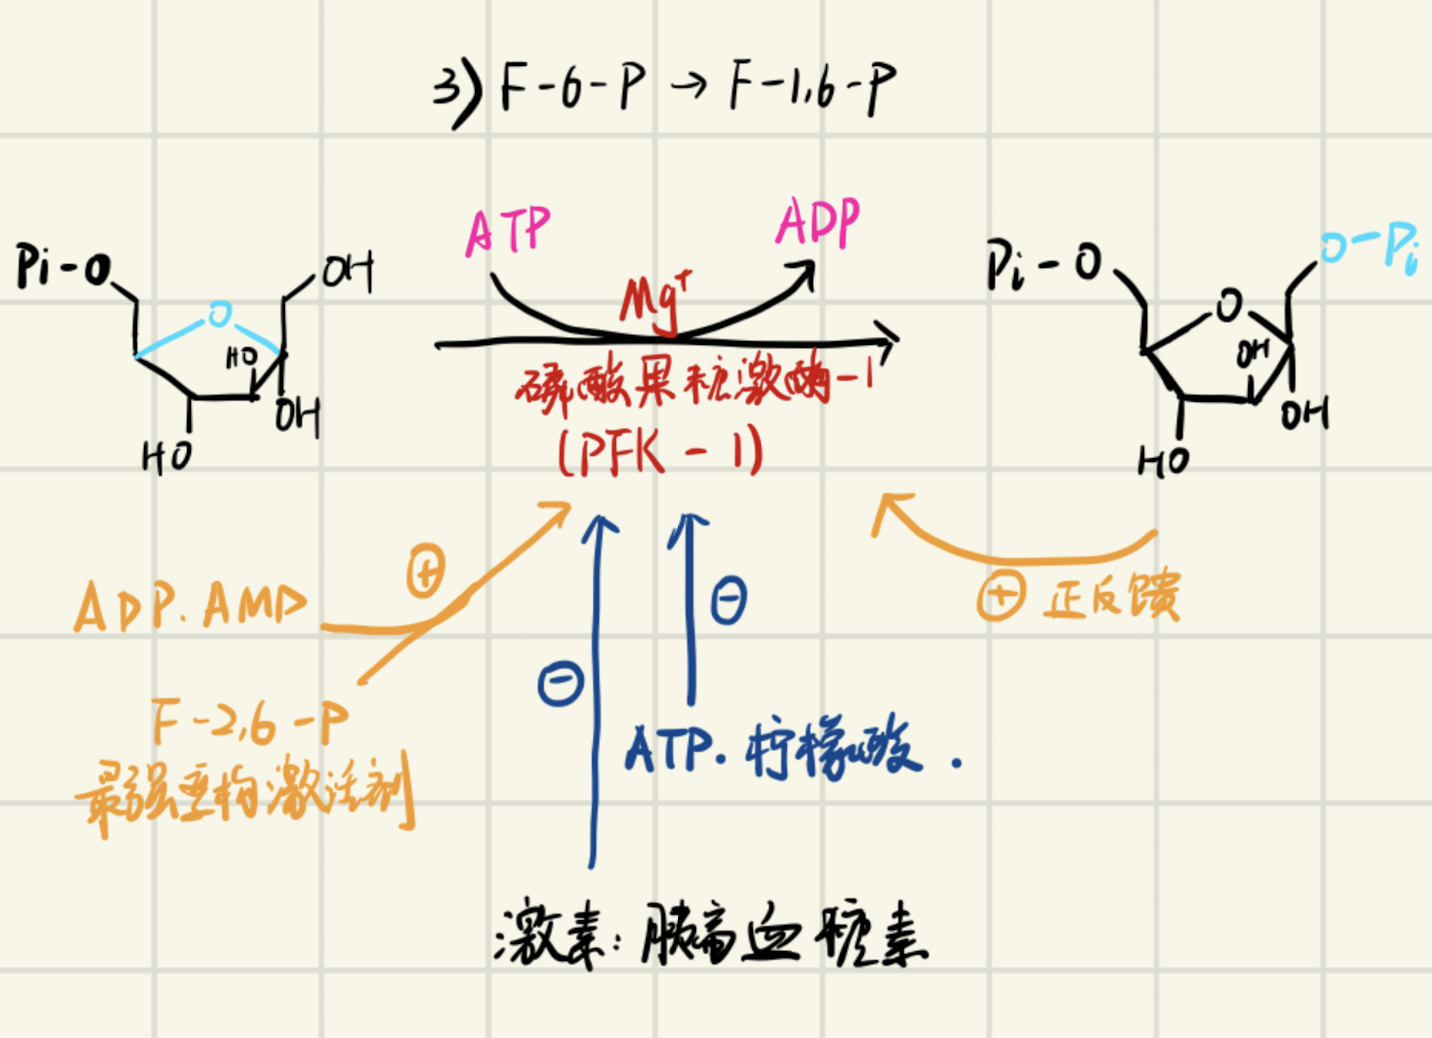 3) F-6-P → F-1,6-P
ATP ADP
Pi-O OH O HO OH HO
Mg⁺
磷酸果糖激酶-1
(PFK-1)
Pi-O O-Pi O OH OH HO
ADP. AMP ⊕
F-2,6-P
最强变构激活剂
⊖ ⊖
ATP. 柠檬酸.
⊕ 正反馈
激素: 胰高血糖素